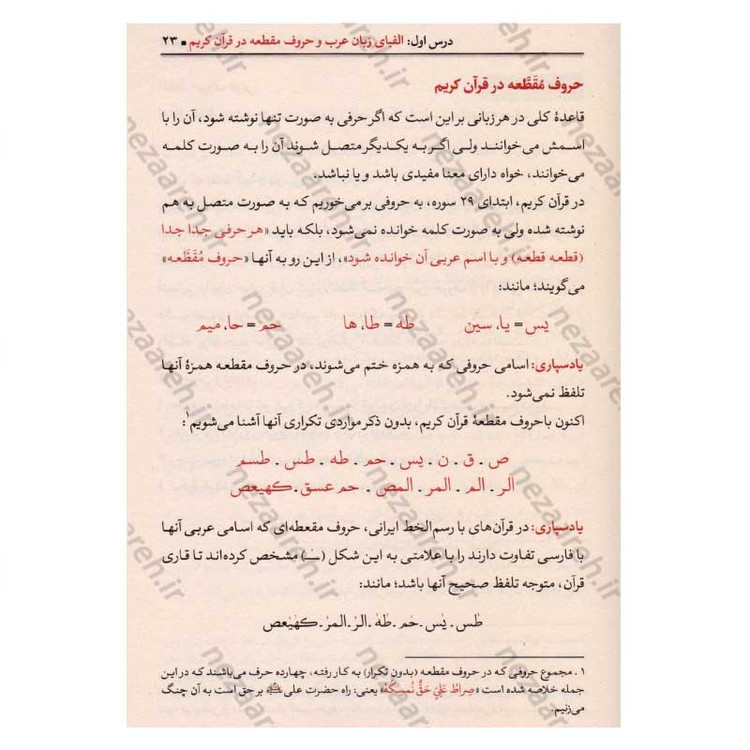 درس اول: الفبای زبان عرب و حروف مقطعه در قرآن کریم ■ ۲۳
حروف مُقَطَّعه در قرآن کریم
قاعدهٔ کلی در هر زبانی بر این است که اگر حرفی به صورت تنها نوشته شود، آن را با
اسمش می‌خوانند ولی اگر به یکدیگر متصل شوند آن را به صورت کلمه
می‌خوانند، خواه دارای معنا مفیدی باشد و یا نباشد.
در قرآن کریم، ابتدای ۲۹ سوره، به حروفی برمی‌خوریم که به صورت متصل به هم
نوشته شده ولی به صورت کلمه خوانده نمی‌شود، بلکه باید «هر حرفی جدا جدا
(قطعه قطعه) و با اسم عربی آن خوانده شود»، از این رو به آنها «حروف مُقَطَّعه»
می‌گویند؛ مانند:
یس = یا، سین طه = طا، ها حم = حا، میم
یادسپاری: اسامی حروفی که به همزه ختم می‌شوند، در حروف مقطعه همزهٔ آنها
تلفظ نمی‌شود.
اکنون با حروف مقطعهٔ قرآن کریم، بدون ذکر مواردی تکراری آنها آشنا می‌شویم۱:
ص . ق . ن . یس . حم . طه . طس . طسم
الر . الم . المر . المص . حم عسق . کهیعص
یادسپاری: در قرآن‌های با رسم‌الخط ایرانی، حروف مقعطه‌ای که اسامی عربی آنها
با فارسی تفاوت دارند را با علامتی به این شکل (ـــٰـ) مشخص کرده‌اند تا قاری
قرآن، متوجه تلفظ صحیح آنها باشد؛ مانند:
طٰس . یٰس . حٰم . طٰهٰ . الرٰ . المرٰ . کهٰیٰعص
۱ . مجموع حروفی که در حروف مقطعه (بدون تکرار) به کار رفته، چهارده حرف می‌باشند که در این
جمله خلاصه شده است «صِراطُ عَلِيٍّ حَقٌّ نُمسِکُهُ» یعنی: راه حضرت علی برحق است به آن چنگ
می‌زنیم.
nezaareh.ir